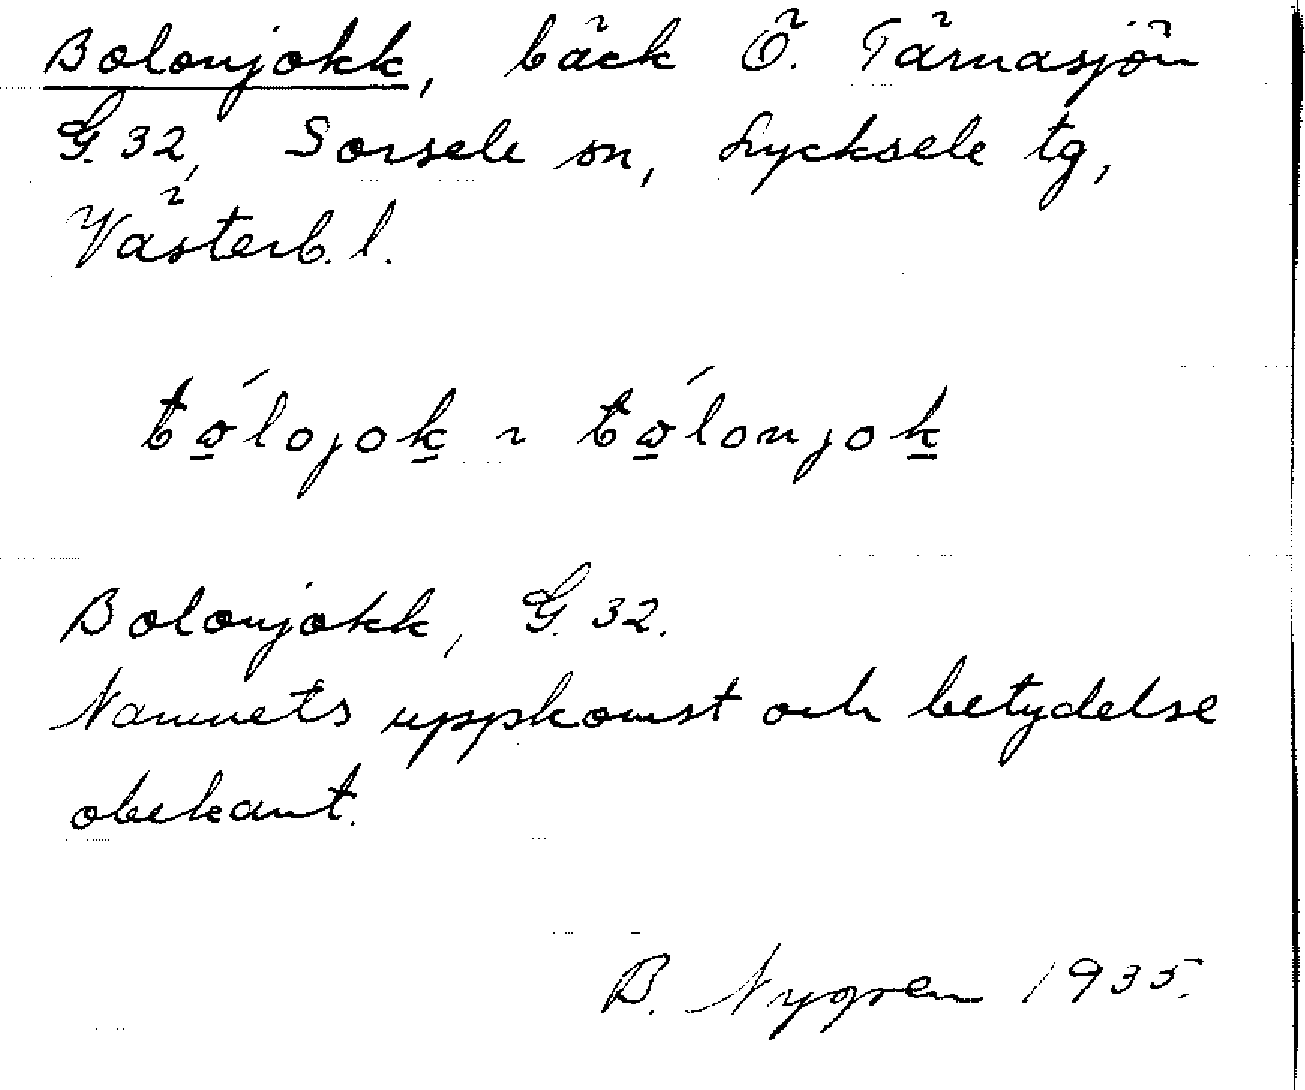 Bolonjokk, bäck Ö. Tärnasjön
G. 32, Sorsele sn, Lycksele tg,
Västerb. l.
Bolonjokk, G. 32.
Namnets uppkomst och betydelse
obekant.
B. Nygren 1935.